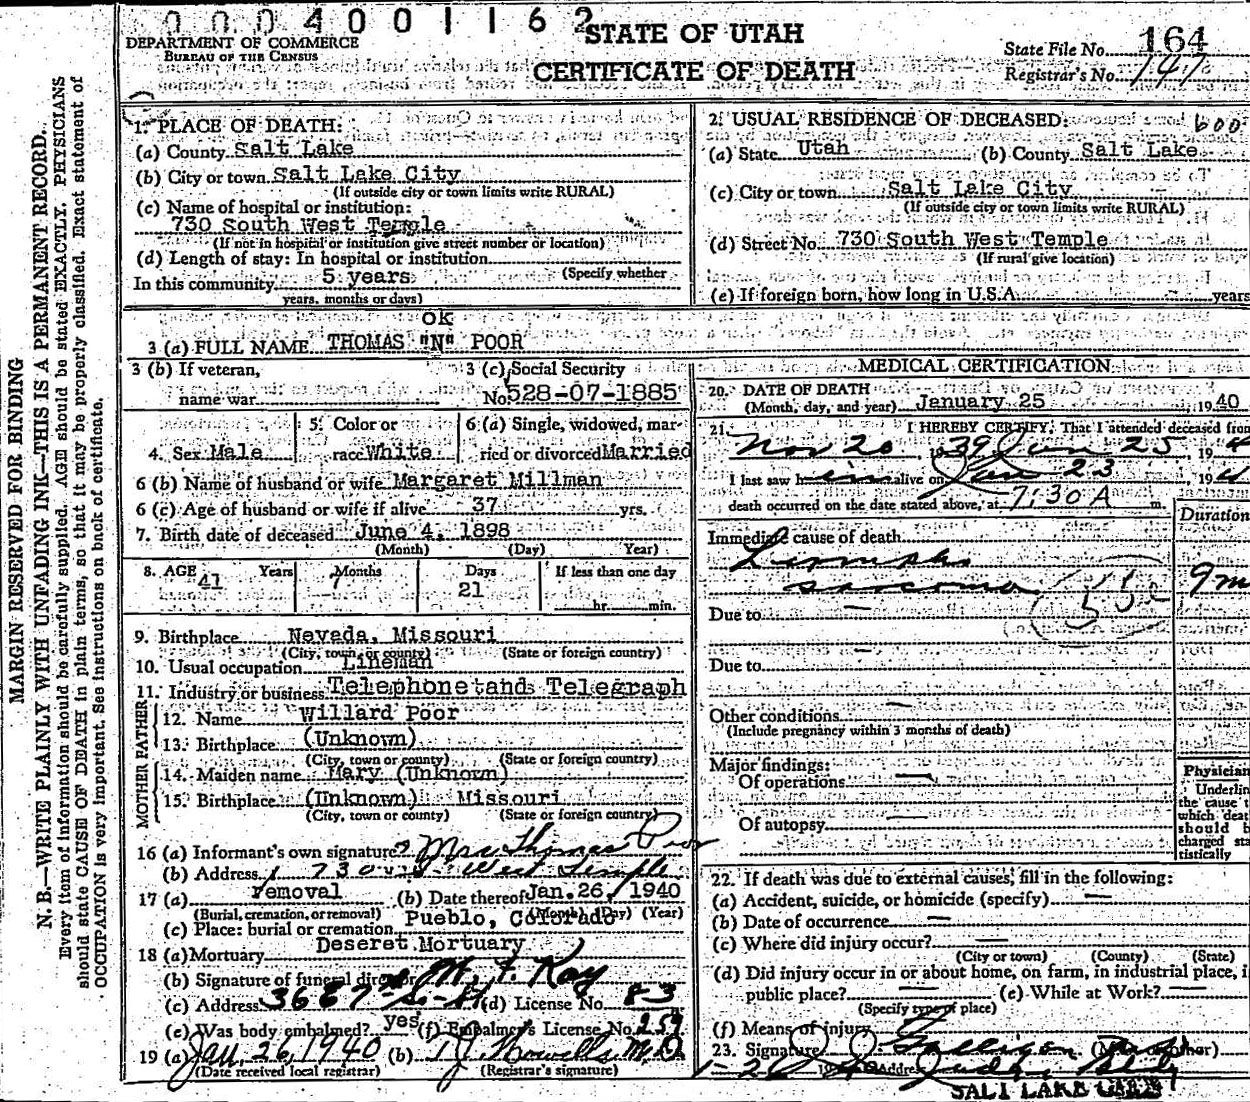 0004001162
STATE OF UTAH
DEPARTMENT OF COMMERCE
BUREAU OF THE CENSUS
CERTIFICATE OF DEATH
State File No. 164
Registrar's No. 147
MARGIN RESERVED FOR BINDING
N. B.—WRITE PLAINLY WITH UNFADING INK—THIS IS A PERMANENT RECORD.
Every item of information should be carefully supplied. AGE should be stated EXACTLY. PHYSICIANS
should state CAUSE OF DEATH in plain terms, so that it may be properly classified. Exact statement of
OCCUPATION is very important. See instructions on back of certificate.
1. PLACE OF DEATH:
(a) County Salt Lake
(b) City or town Salt Lake City
(If outside city or town limits write RURAL)
(c) Name of hospital or institution:
730 South West Temple
(If not in hospital or institution give street number or location)
(d) Length of stay: In hospital or institution
(Specify whether
In this community 5 years
years, months or days)
2. USUAL RESIDENCE OF DECEASED: 600
(a) State Utah (b) County Salt Lake
(c) City or town Salt Lake City
(If outside city or town limits write RURAL)
(d) Street No. 730 South West Temple
(If rural give location)
(e) If foreign born, how long in U.S.A. years
OK
3 (a) FULL NAME THOMAS "N" POOR
3 (b) If veteran,
name war
3 (c) Social Security
No. 528-07-1885
4. Sex Male
5. Color or
race White
6 (a) Single, widowed, mar-
ried or divorced Married
6 (b) Name of husband or wife Margaret Millman
6 (c) Age of husband or wife if alive 37 yrs.
7. Birth date of deceased June 4, 1898
(Month) (Day) Year)
8. AGE Years Months Days If less than one day
41 7 21
hr. min.
9. Birthplace Nevada, Missouri
(City, town, or county) (State or foreign country)
10. Usual occupation Lineman
11. Industry or business Telephone and Telegraph
FATHER
12. Name Willard Poor
13. Birthplace (Unknown)
(City, town or county) (State or foreign country)
MOTHER
14. Maiden name Mary (Unknown)
15. Birthplace (Unknown) Missouri
(City, town or county) (State or foreign country)
16 (a) Informant's own signature Mrs Thomas Poor
(b) Address 730 So West Temple
17 (a) removal (b) Date thereof Jan. 26, 1940
(Burial, cremation, or removal) (Month) (Day) (Year)
(c) Place: burial or cremation Pueblo, Colorado
18 (a) Mortuary Deseret Mortuary
(b) Signature of funeral director
(c) Address (d) License No. 83
(e) Was body embalmed? yes (f) Embalmer's License No. 259
19 (a) Jan. 26, 1940 (b)
(Date received local registrar) (Registrar's signature)
MEDICAL CERTIFICATION
20. DATE OF DEATH
(Month, day, and year) January 25 1940
21. I HEREBY CERTIFY, That I attended deceased from
Nov 20 1939 Jan 25 194
I last saw him alive on Jan 23 194
death occurred on the date stated above, at 7:30 A m.
Duration
Immediate cause of death
Lympho
sarcoma 9 m
Due to
Due to
Other conditions
(Include pregnancy within 3 months of death)
Major findings:
Of operations
Of autopsy
Physician
Underlin
the cause t
which deat
should b
charged sta
tistically
22. If death was due to external causes, fill in the following:
(a) Accident, suicide, or homicide (specify)
(b) Date of occurrence
(c) Where did injury occur?
(City or town) (County) (State)
(d) Did injury occur in or about home, on farm, in industrial place, i
public place? (e) While at Work?
(Specify type of place)
(f) Means of injury
23. Signature Galligan
Address Judge Bldg
SALT LAKE CITY